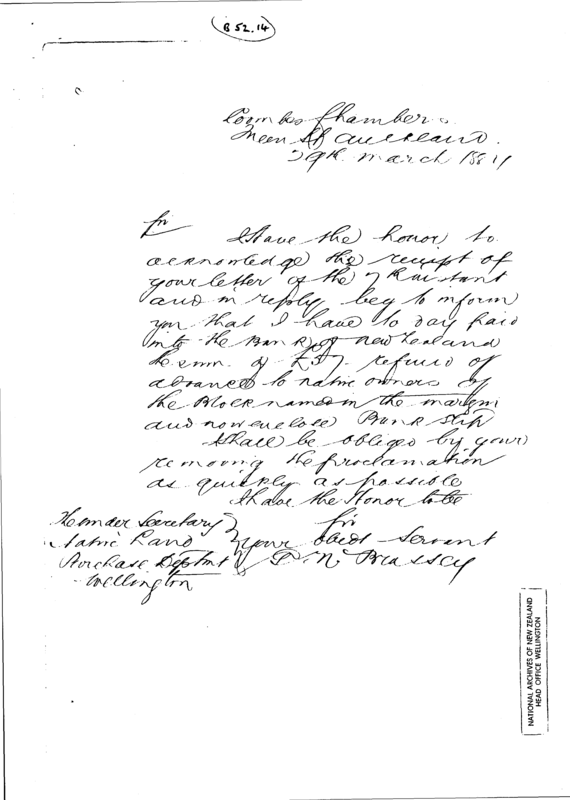 B 52. 14
Coombes Chambers
Queen St Auckland
29th March 1881
Sir
I have the honor to
acknowledge the receipt of
your letter of the 7th instant
and in reply beg to inform
you that I have to day paid
into the Bank of New Zealand
the sum of refund of
advances to native owners of
the Block named in the margin
and now enclose Bank slip
I shall be obliged by your
removing the proclamation
as quickly as possible
I have the Honor to be
Sir
Your Obedt Servant
The Under Secretary
Native Land
Purchase Deptmt
Wellington
NATIONAL ARCHIVES OF NEW ZEALAND
HEAD OFFICE WELLINGTON